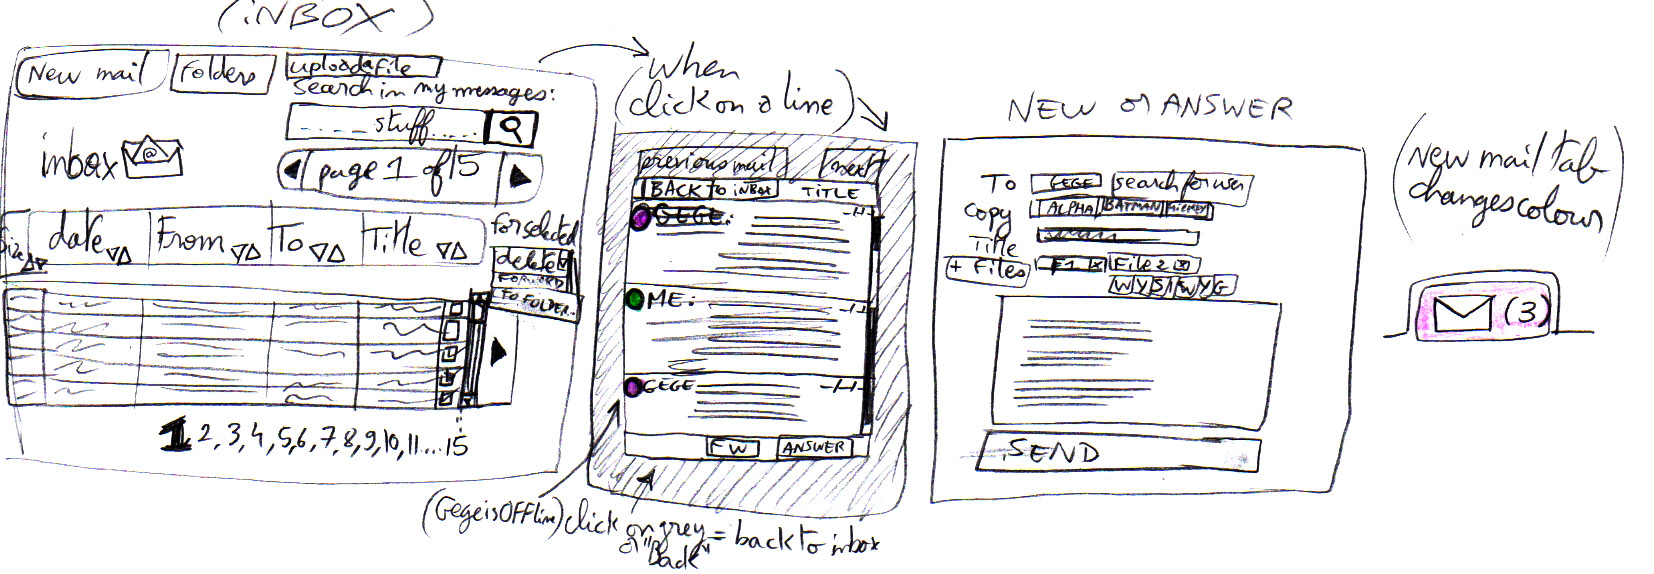 (INBOX)
New mail
Folders
upload a file
Search in my messages:
stuff.....
inbox @
page 1 of 15
Size
date
From
To
Title
for selected
delete
FORWARD
TO FOLDER..
1, 2, 3, 4, 5, 6, 7, 8, 9, 10, 11 ... 15
(when
click on a line)
previous mail
next
BACK to INBOX
TITLE
GEGE:
-/-/-
ME:
-/-/-
GEGE
-/-/-
FW
ANSWER
(Gege is OFFline)
click on grey = back to inbox
or "Back"
NEW or ANSWER
To
GEGE
search for user
Copy
ALPHA
BATMAN
Title
+ Files
F1 x
File 2 x
W Y S I W Y G
SEND
(New mail tab
changes colour)
(3)